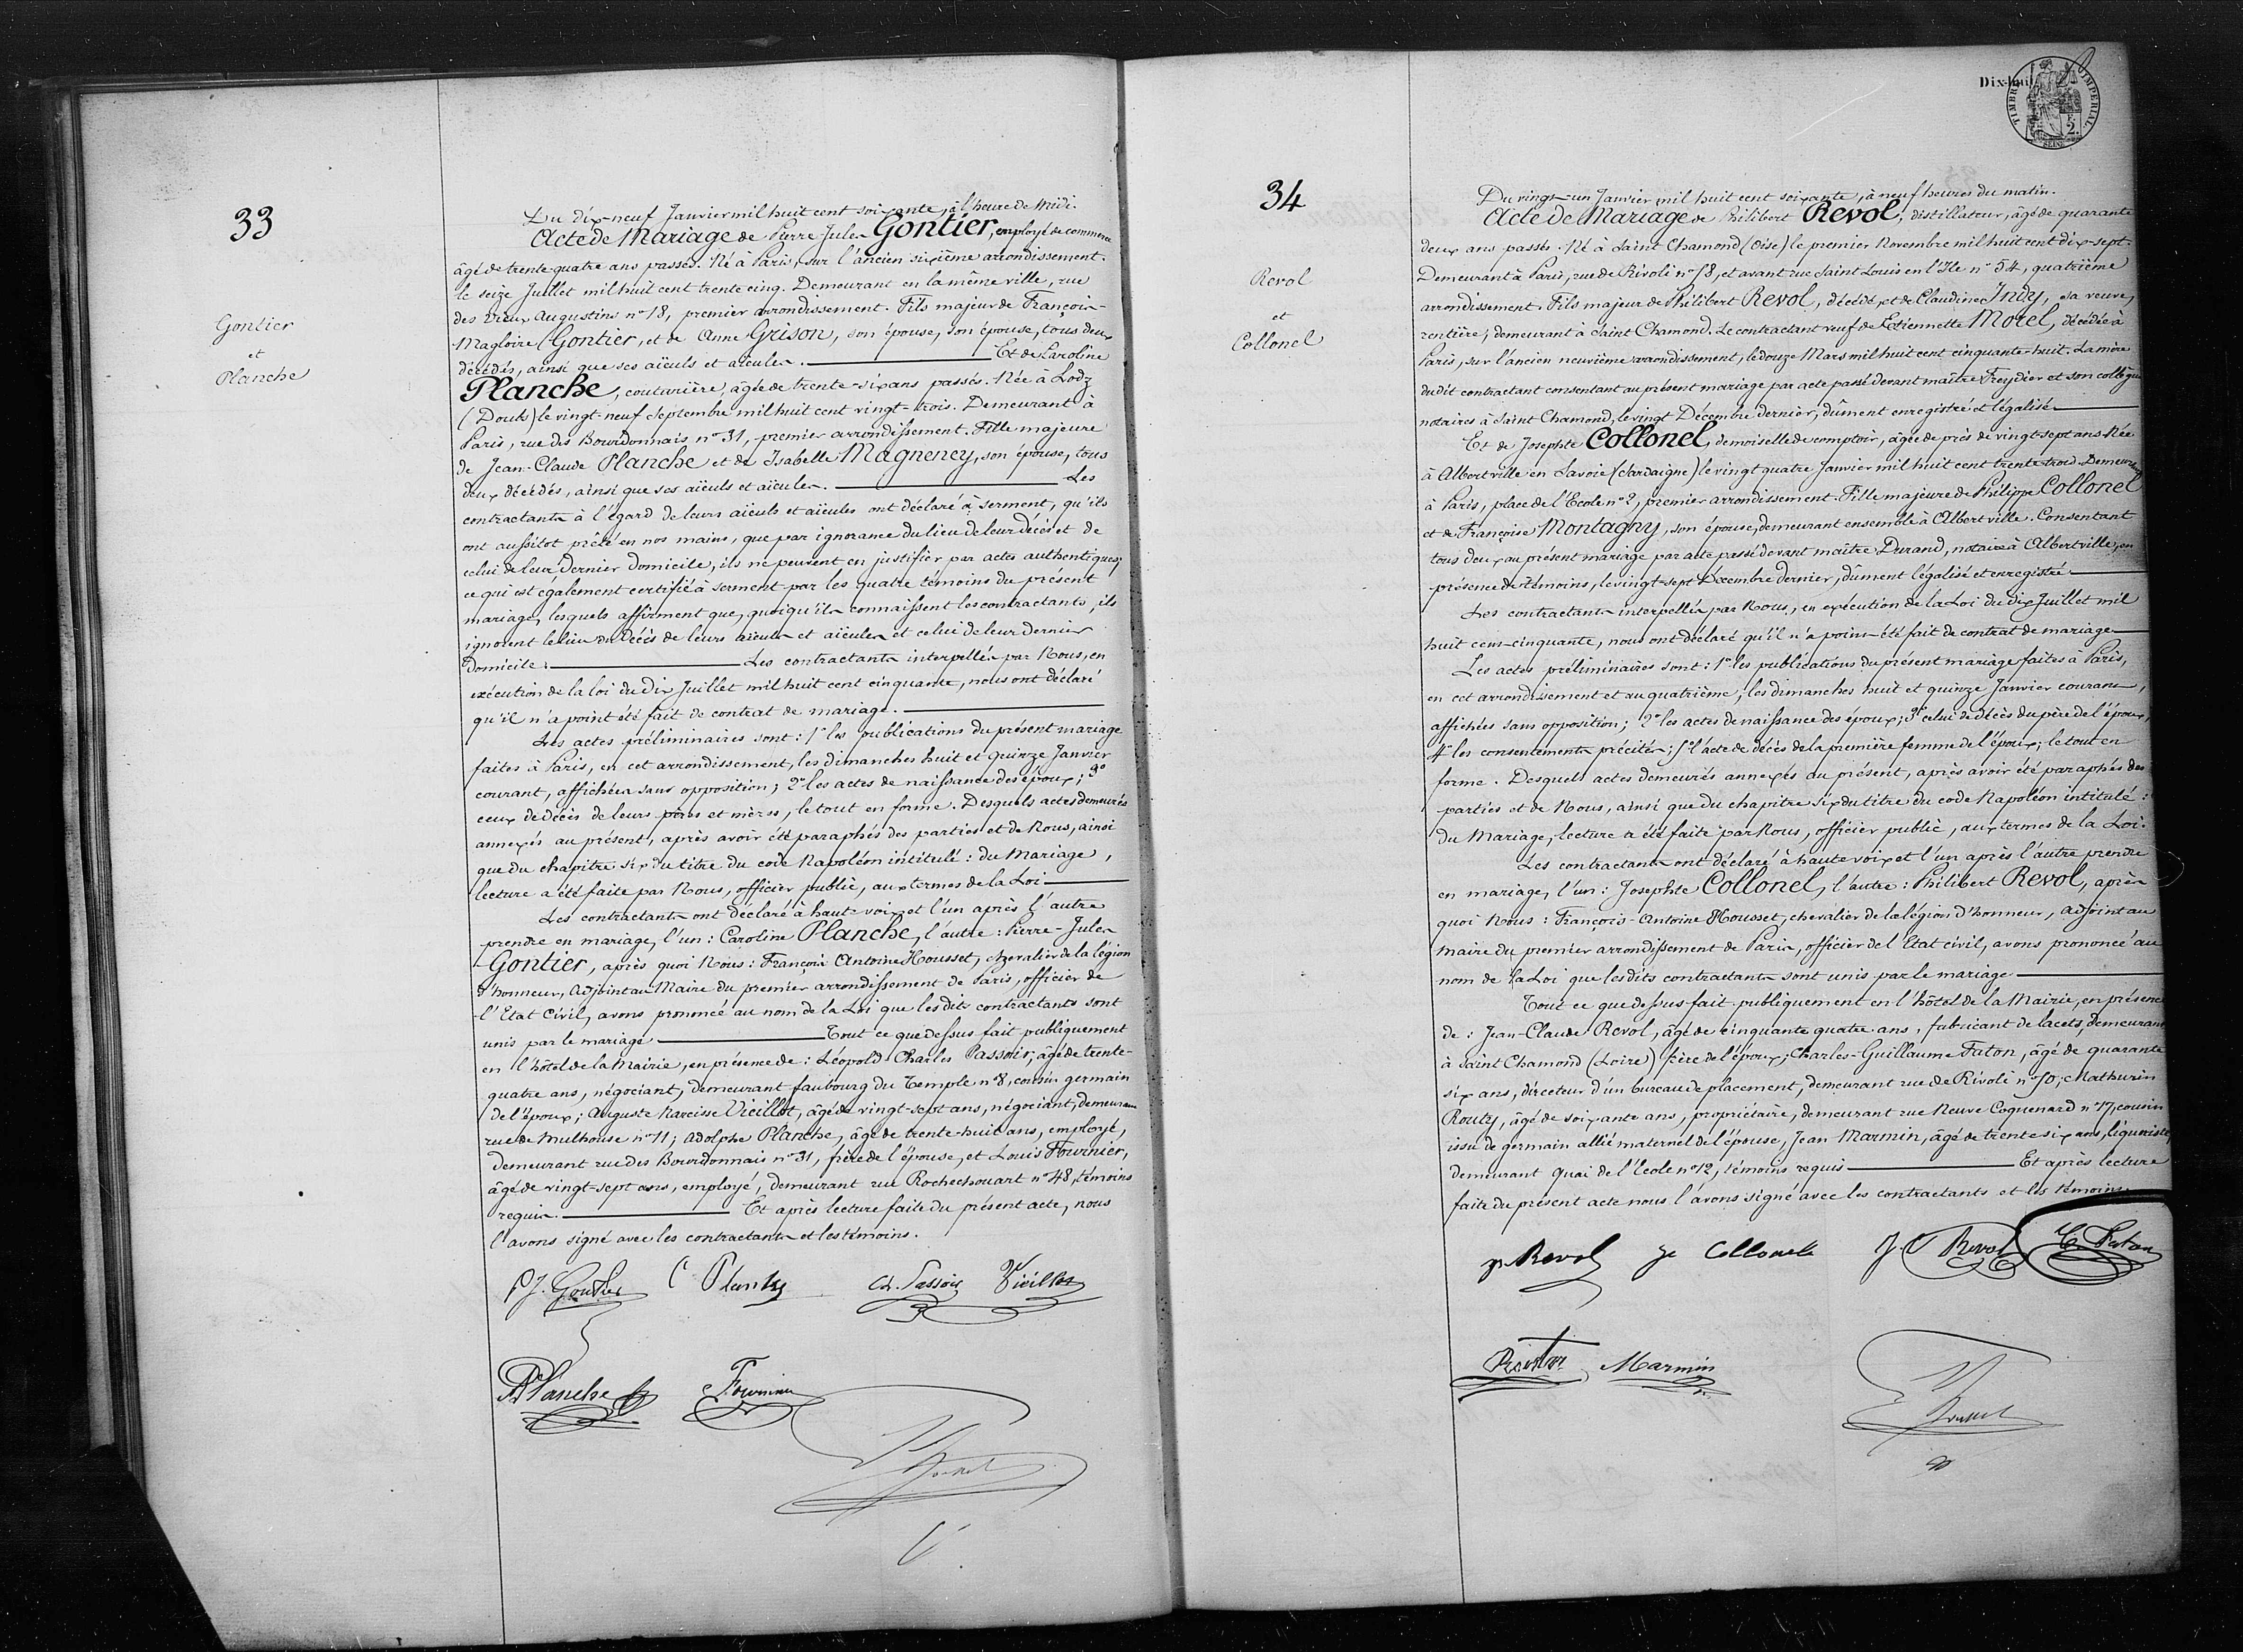 33
Gontier
et
Planche
Du dix-neuf Janvier mil huit cent soixante, à l'heure de Midi.
Acte de Mariage de Pierre-Jules Gontier, employé de commerce
âgé de trente quatre ans passés. Né à Paris, sur l'ancien sixième arrondissement.
le seize Juillet mil huit cent trente cinq. Demeurant en la même ville, rue
des Vieux Augustins n° 18, premier arrondissement. Fils majeur de François-
Magloire Gontier, et de Anne Grison, son épouse, son épouse, tous deux
décédés, ainsi que ses aïeuls et aïeules. Et de Caroline
Planche, couturière, âgée de trente-six ans passés. Née à Lodz
(Doubs) le vingt-neuf Septembre mil huit cent vingt-trois. Demeurant à
Paris, rue des Bourdonnais n° 31, premier arrondissement. Fille majeure
de Jean-Claude Planche et de Isabelle Magneney, son épouse, tous
deux décédés, ainsi que ses aïeuls et aïeules. Les
contractants à l'égard de leurs aïeuls et aïeules ont déclaré à serment, qu'ils
ont aussitot prêté en nos mains, que par ignorance du lieu de leur décès et de
celui de leur dernier domicile, ils ne peuvent en justifier par actes authentiques,
ce qui est également certifié à serment par les quatre témoins du présent
mariage, lesquels affirment que, quoiqu'ils connaissent les contractants, ils
ignorent le lieu du décès de leurs aïeuls et aïeules et celui de leur dernier
domicile. Les contractants interpellés par Nous, en
exécution de la loi du dix Juillet mil huit cent cinquante, nous ont déclaré
qu'il n'a point été fait de contrat de mariage.
Les actes préliminaires sont : 1° les publications du présent mariage
faites à Paris, en cet arrondissement, les dimanches huit et quinze Janvier
courant, affichées sans opposition ; 2° les actes de naissance des époux ; 3°
ceux de décès de leurs pères et mères, le tout en forme. Desquels actes demeurés
annexés au présent, après avoir été paraphés des parties et de Nous, ainsi
que du chapitre six du titre du code Napoléon intitulé : du Mariage,
lecture a été faite par Nous, officier public, aux termes de la Loi
Les contractants ont déclaré à haute voix et l'un après l'autre
prendre en mariage, l'un : Caroline Planche, l'autre : Pierre-Jules
Gontier, après quoi Nous : François Antoine Housset, chevalier de la légion
d'honneur, Adjoint au Maire du premier arrondissement de Paris, officier de
l'Etat Civil, avons prononcé au nom de la Loi que lesdits contractants sont
unis par le mariage Tout ce que dessus fait publiquement
en l'hôtel de la Mairie, en présence de : Léopold-Charles Passoir, âgé de trente-
quatre ans, négociant, demeurant faubourg du Temple n° 8, cousin germain
de l'époux ; Auguste Narcisse Vieillot, âgé de vingt-sept ans, négociant, demeurant
rue de Mulhouse n° 11 ; Adolphe Planche, âgé de trente-huit ans, employé,
demeurant rue des Bourdonnais n° 31, frère de l'épouse, et Louis Fournier,
âgé de vingt-sept ans, employé, demeurant rue Rochechouart n° 48, témoins
requis. Et après lecture faite du présent acte, nous
l'avons signé avec les contractants et les témoins.
P J. Gontier C Planche Ch. Passoir Vieillot
A Planche Fournier
Dix-huit
TIMBRE IMPERIAL
2
34
Revol
et
Collonel
Du vingt-un Janvier mil huit cent soixante, à neuf heures du matin.
Acte de Mariage de Philibert Revol, distillateur, âgé de quarante
deux ans passés. Né à Saint Chamond (Oise) le premier Novembre mil huit cent dix-sept.
Demeurant à Paris, rue de Rivoli n° 18, et avant rue Saint Louis en l'Ile n° 54, quatrième
arrondissement. Fils majeur de Philibert Revol, décédé, et de Claudine Indy, sa veuve,
rentière, demeurant à Saint Chamond. Le contractant veuf de Etiennette Morel, décédée à
Paris, sur l'ancien neuvième arrondissement, le douze Mars mil huit cent cinquante-huit. La mère
dudit contractant consentant au présent mariage par acte passé devant maître Freydier et son collègue
notaires à Saint Chamond, le vingt Décembre dernier, dûment enregistré et légalisé
Et de Josephte Collonel, demoiselle de comptoir, âgée de près de vingt-sept ans. Née
à Albertville en Savoie (Sardaigne) le vingt quatre Janvier mil huit cent trente-trois. Demeurant
à Paris, place de l'Ecole n° 2, premier arrondissement. Fille majeure de Philippe Collonel
et de Françoise Montagny, son épouse, demeurant ensemble à Albertville. Consentant
tous deux au présent mariage par acte passé devant maître Durand, notaire à Albertville, en
présence de témoins, le vingt-sept Décembre dernier, dûment légalisé et enregistré
Les contractants interpellés par Nous, en exécution de la Loi du dix Juillet mil
huit cent-cinquante, nous ont déclaré qu'il n'a point été fait de contrat de mariage
Les actes préliminaires sont : 1° les publications du présent mariage faites à Paris,
en cet arrondissement et au quatrième, les dimanches huit et quinze Janvier courant,
affichées sans opposition ; 2° les actes de naissance des époux ; 3° celui de décès du père de l'époux,
4° les consentements précités ; 5° l'acte de décès de la première femme de l'époux ; le tout en
forme. Desquels actes demeurés annexés au présent, après avoir été paraphés des
parties et de Nous, ainsi que du chapitre six du titre du code Napoléon intitulé :
du Mariage, lecture a été faite par Nous, officier public, aux termes de la Loi.
Les contractants ont déclaré à haute voix et l'un après l'autre prendre
en mariage, l'un : Josephte Collonel, l'autre : Philibert Revol, après
quoi Nous : François-Antoine Housset, chevalier de la légion d'honneur, Adjoint au
maire du premier arrondissement de Paris, officier de l'Etat civil, avons prononcé au
nom de la Loi que lesdits contractants sont unis par le mariage
Tout ce que dessus fait publiquement en l'hôtel de la Mairie, en présence
de : Jean-Claude Revol, âgé de cinquante quatre ans, fabricant de lacets, demeurant
à Saint Chamond (Loire) frère de l'époux ; Charles-Guillaume Faton, âgé de quarante
six ans, directeur d'un bureau de placement, demeurant rue de Rivoli n° 50 ; Mathurin
Routy, âgé de soixante ans, propriétaire, demeurant rue Neuve Coquenard n° 17, cousin
issu de germain allié maternel de l'épouse, Jean Marmin, âgé de trente six ans, liquoriste,
demeurant Quai de l'Ecole n° 12, témoins requis Et après lecture
faite du présent acte nous l'avons signé avec les contractants et les témoins
p. Revol je Collonelle J. C Revol C. Faton
Marmin